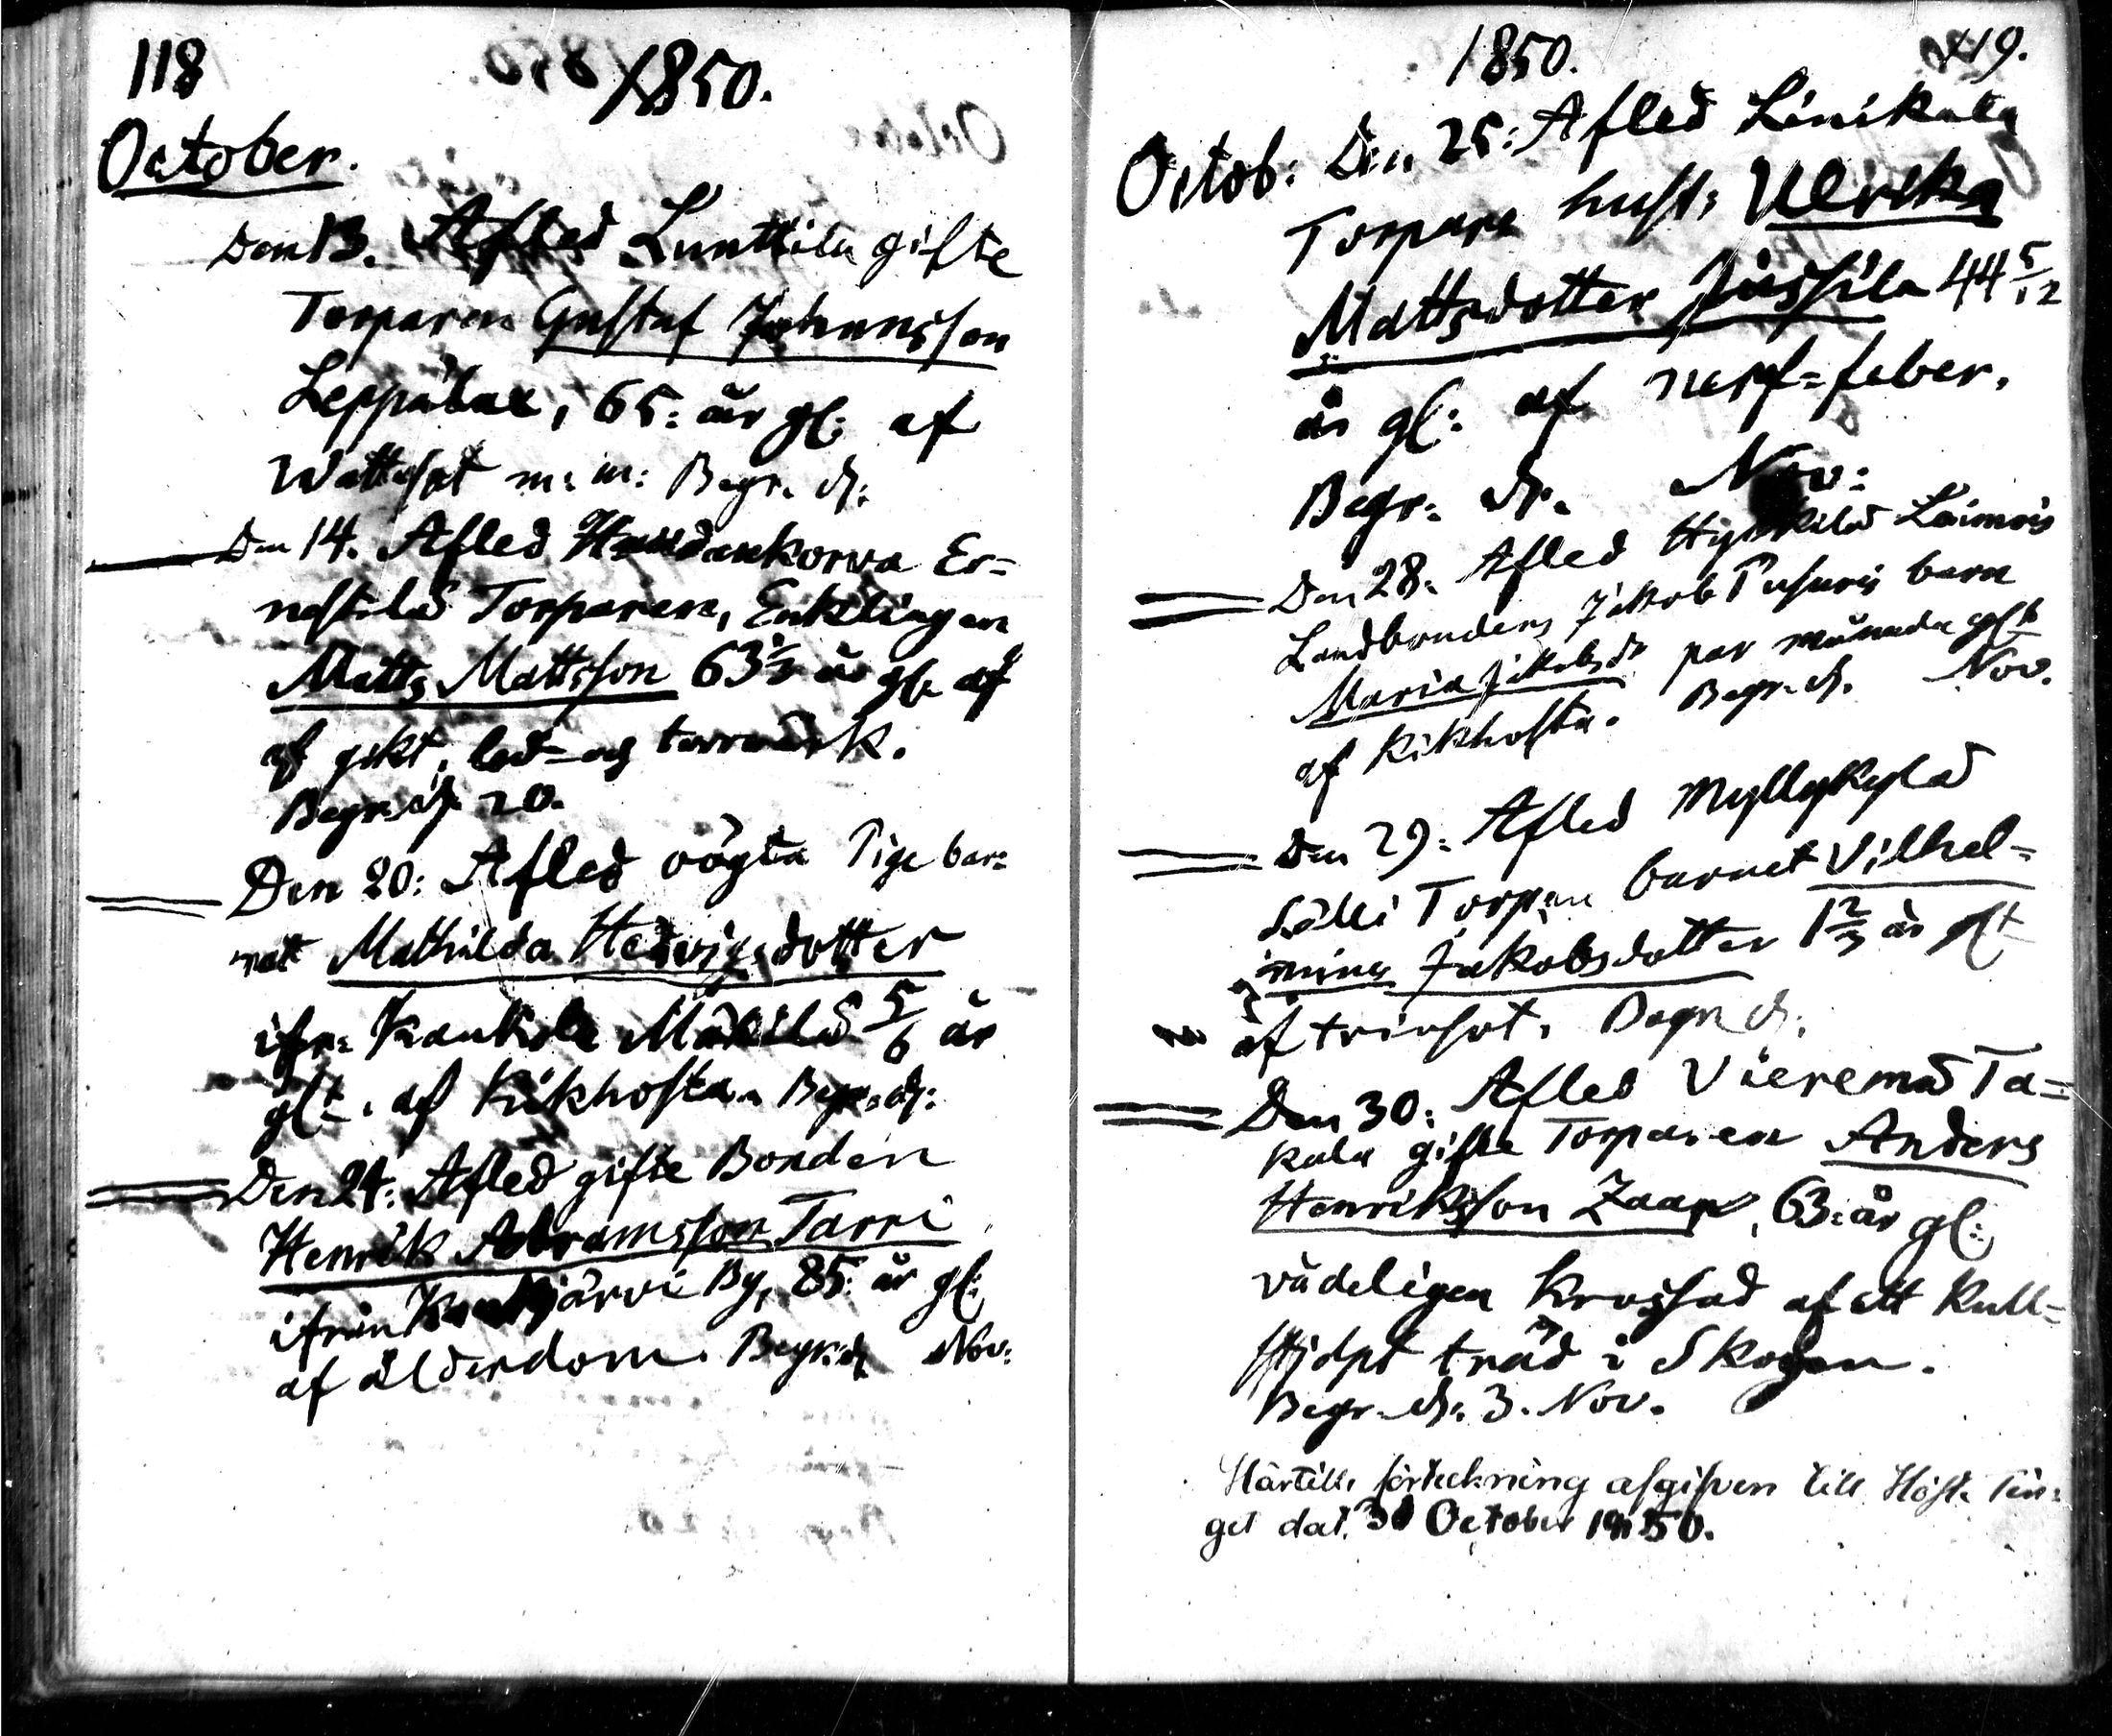 118
1850.
October.
Den 13. Afled Lunttila gifte
Torparen Gustaf Johansson
Leppälax, 65: år gl: af
Wattusot m: m: Begr. d:
Den 14. Afled Er=
nestilas Torparen, Enklingen
Matts Mattsson 63 1/3 år gl. af
af gikt, led- och torrverk.
Begr. d: 20.
Den 20: Afled oägta Pige bar=
net Mathilda Hedvigsdotter
ifr: Kaukola Mäkilas 5/6 år
glt. af Kikhosta. Begr. d:
Den 24: Afled gifte Bonden
Henrik Abramsson Tarri
ifrån By, 85: år gl:
af ålderdom. Begr. d. Nov:
1850.
119.
Octob: Den 25: Afled Linikkala
Torpare hust: Ulrika
Mattsdotter Jussila 44 5/12
år gl: af nerf=feber.
Begr: d: Nov:
Den 28. Afled
Landbondens Jakob Pusuris barn
Maria Jakobsdr par månader glt
af Kikhosta. Begr. d. Nov.
Den 29: Afled Myllykyläs
Sälli Torpan barnet Vilhel=
mina Jakobsdotter 1 2/3 år glt
af trinsot. Begr. d:
Den 30: Afled Vieremäs Ta=
kala gifte Torparen Anders
Henriksson Zaar, 63: år gl:
vådeligen krossad af ett kull=
stjelpt träd i Skogen.
Begr. d: 3. Nov.
Härtills förteckning afgifven till Höste Tin=
get dat. 30 October 1850.